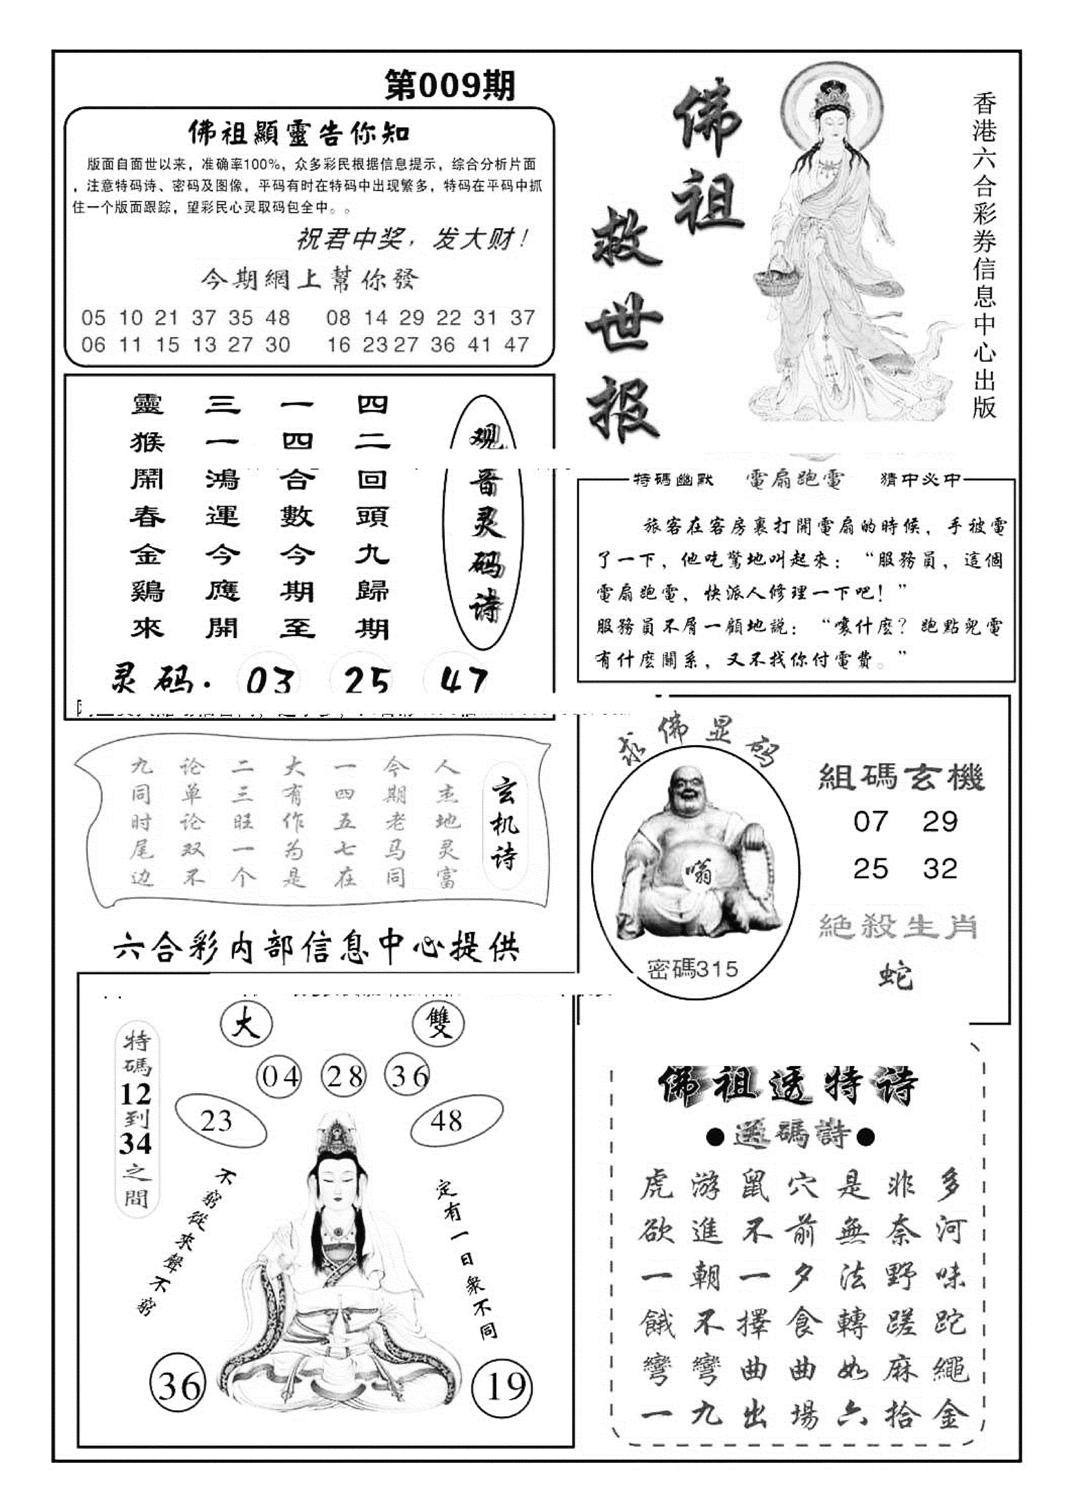 第009期
佛祖顯靈告你知
版面自面世以来，准确率100%，众多彩民根据信息提示，综合分析片面
，注意特码诗、密码及图像，平码有时在特码中出现繁多，特码在平码中抓
住一个版面跟踪，望彩民心灵取码包全中。。
祝君中奖，发大财！
今期網上幫你發
05 10 21 37 35 48 08 14 29 22 31 37
06 11 15 13 27 30 16 23 27 36 41 47
佛祖
救世报
香港六合彩券信息中心出版
观音灵码诗
四二回頭九歸期
一四合數今期至
三一鴻運今應開
靈猴鬧春金鷄來
灵码. 03 25 47
特碼幽默 電扇跑電 猜中必中
旅客在客房裏打開電扇的時候，手被電
了一下，他吃驚地叫起來：“服務員，這個
電扇跑電，快派人修理一下吧！”
服務員不屑一顧地説：“嚷什麽？跑點兒電
有什麽關系，又不找你付電費。”
玄机诗
人杰地灵富
今期老马同
一四五七在
大有作为是
二三旺一个
论单论双不
九同时尾边
求佛显码
嗡
密碼315
組碼玄機
07 29
25 32
絶殺生肖
蛇
六合彩内部信息中心提供
大 雙
04 28 36
23 48
特碼12到34之間
不窮從來聲不窮
定有一日衆不同
36 19
佛祖透特诗
●送碼詩●
虎游鼠穴是非多
欲進不前無奈河
一朝一夕法野味
餓不擇食轉蹉跎
彎彎曲曲如麻繩
一九出場六拾金